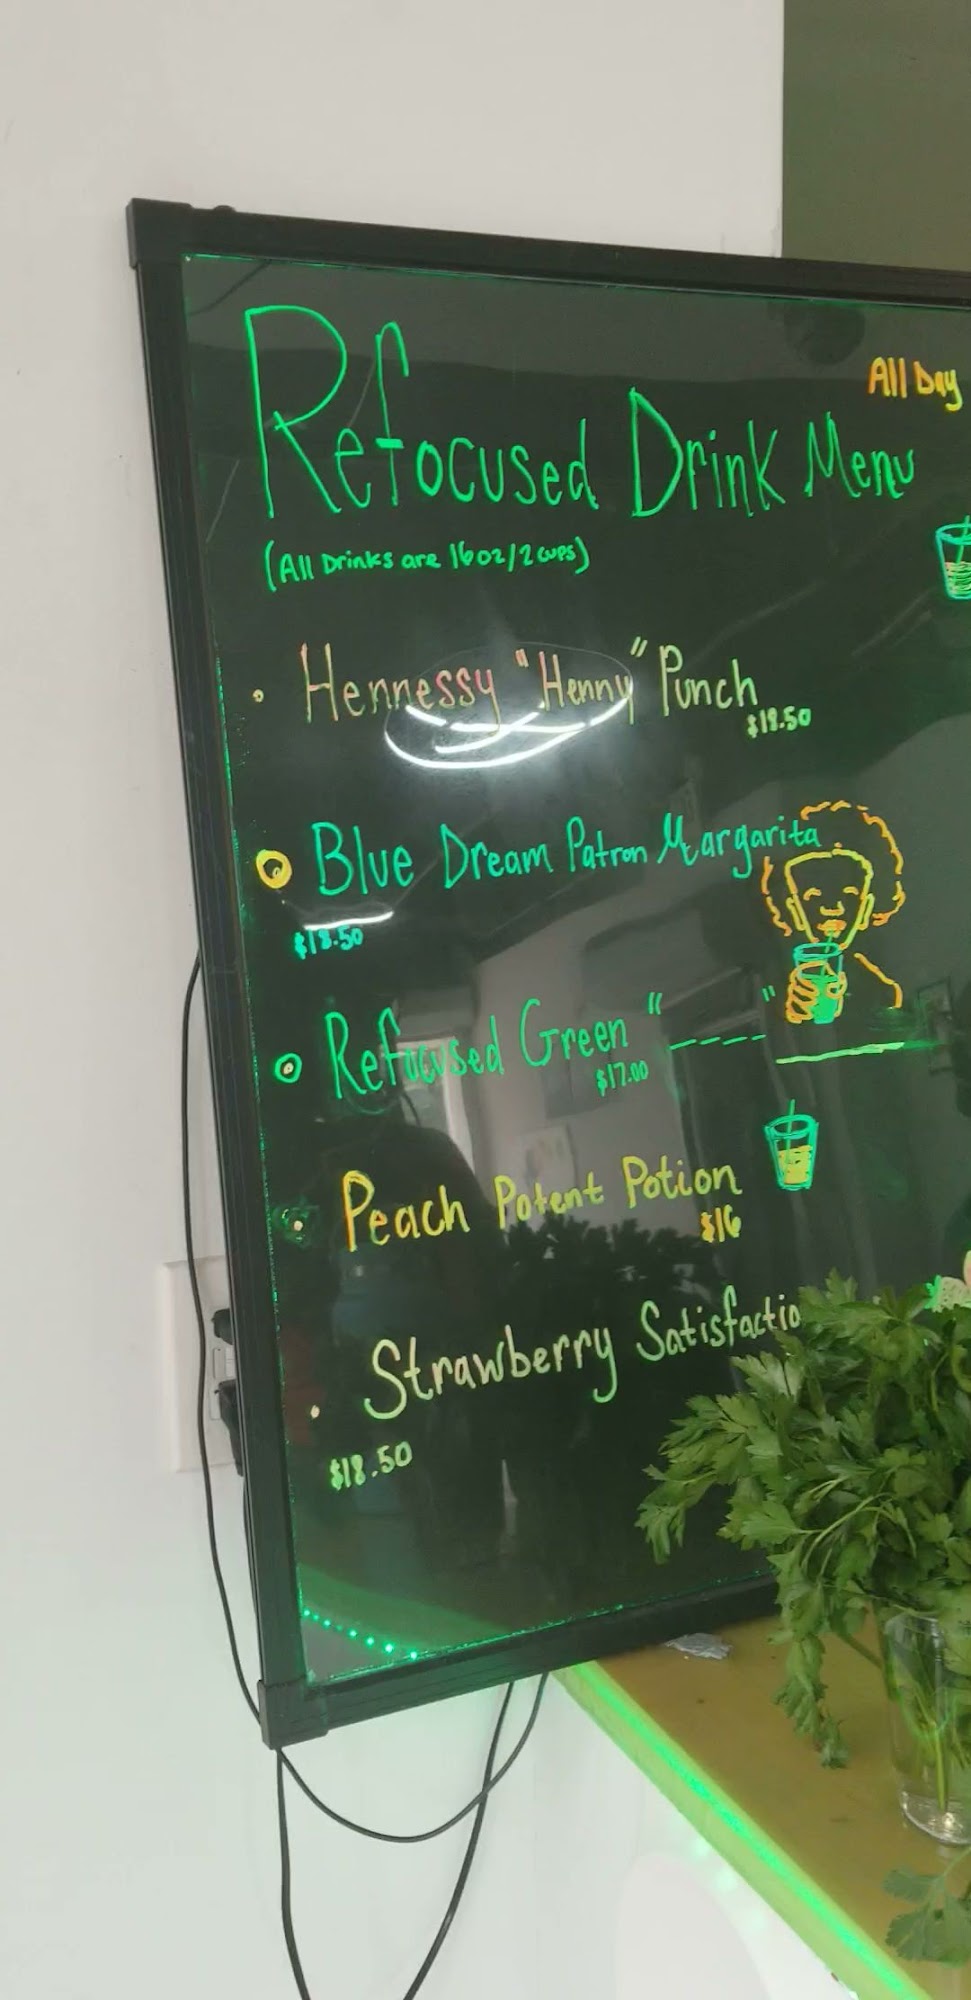 All Day
Refocused Drink Menu
(All Drinks are 16oz/2cups)
Hennessy "Henny" Punch
$18.50
Blue Dream Patron Margarita
$18.50
Refocused Green " "
$17.00
Peach Potent Potion
$16
Strawberry Satisfactio
$18.50